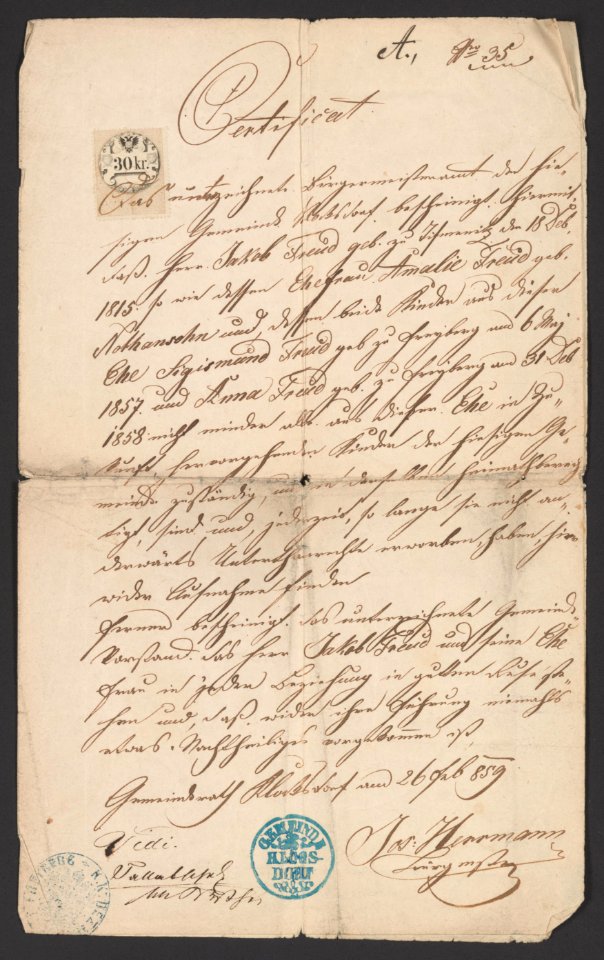 A., Nro 35
Certificat
30 kr.
Das unterzeichnete Bürgermeisteramt der hie-
sigen Gemeinde Kloksdorf. bescheinigt hiermit
daß. Herr. Jakob Freud geb. zu Tismenitz den 18 Deb.
1815. so wie dessen Ehefrau Amalie Freud geb.
Nathansohn und, dessen beide Kinder aus dieser
Ehe Sigismund Freud geb zu Freyberg am 6 Maj
1857. und Anna Freud geb. zu Freyberg am 31 Deb
1858. nicht minder alle. aus dieser. Ehe in Zu-
kunft, hervorgehenden Kinder der hiesigen Ge-
meinde zuständig, und in heimathberech
tigt, sind und, jederzeit, so lange sie nicht an-
derwärts Unterthansrechte erworben, haben, hier
wider Aufnahme finden
ferner bescheinigt. das unterzeichnete Gemeinde
Vorstand. das Herr Jakob Freud und seine Ehe
frau in jeder Beziehung in gutten Rufe ste-
hen und, daß. wider ihre Führung niemahls
etwas Nachtheiliges vorgekommen ist
Gemeindrath Kloksdorf am 26 Feb 859
Vidi.
Jos: Herrmann
GEMEINDE
KLOGS-
DORF